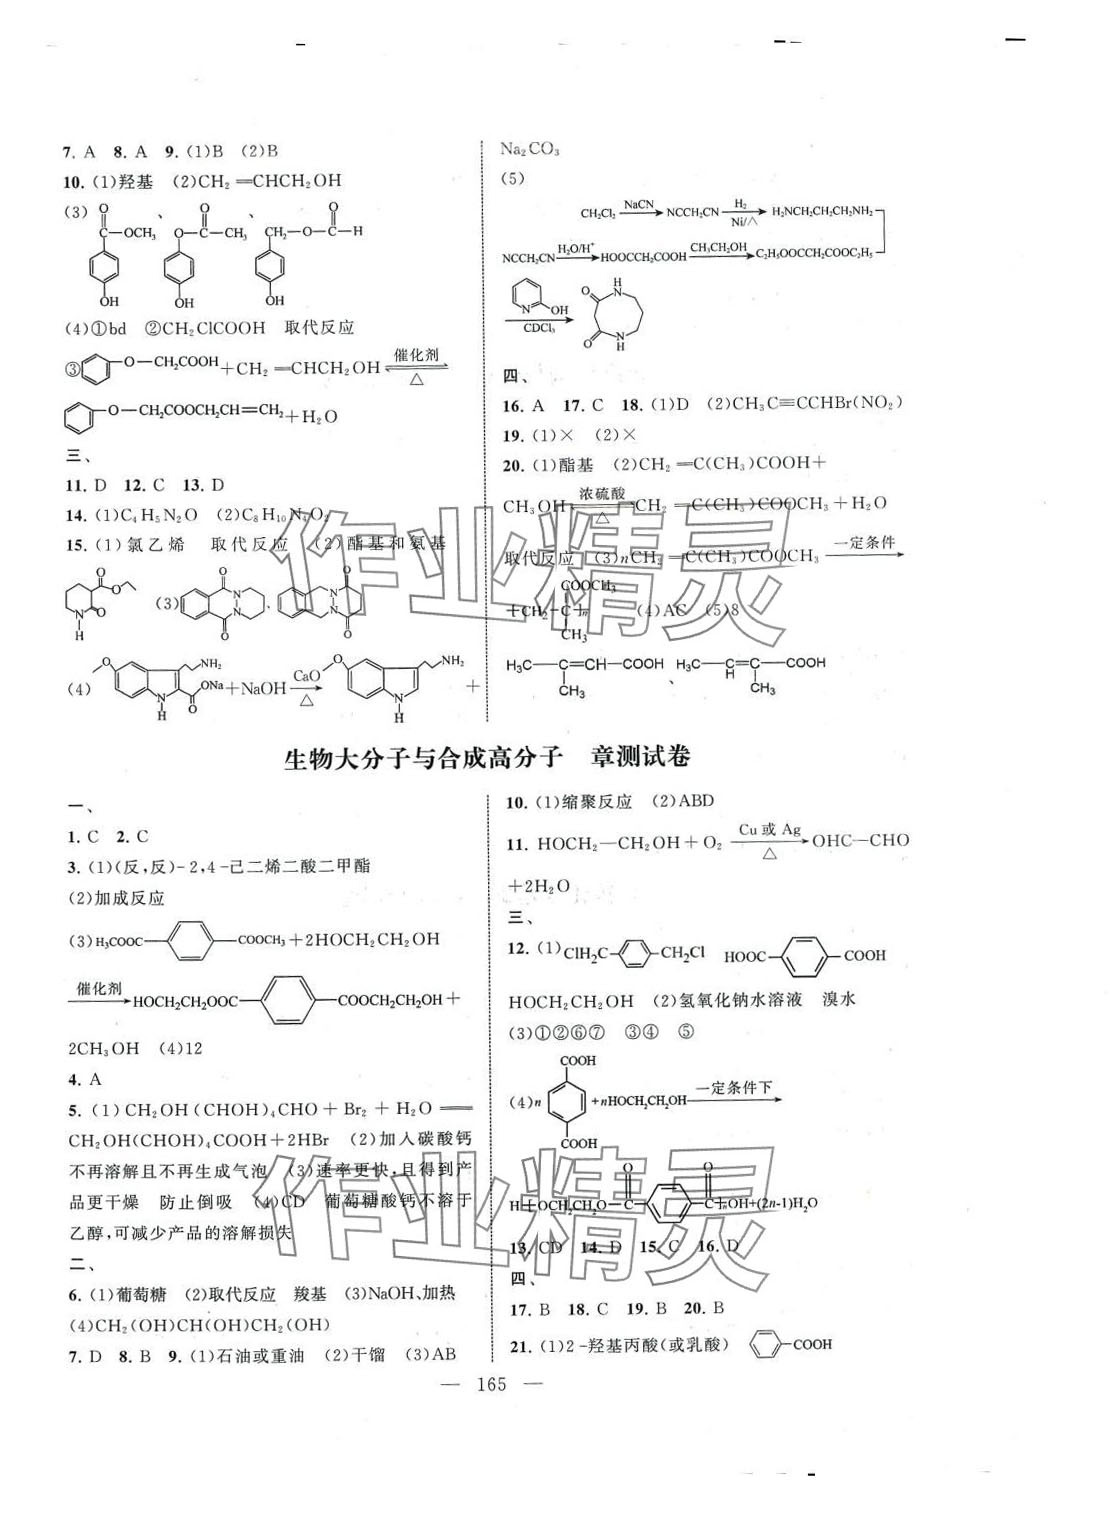 7. A 8. A 9. (1)B (2)B
10. (1)羟基 (2)CH₂=CHCH₂OH
(3)
O O O
C—OCH₃、 O—C—CH₃、 CH₂—O—C—H
OH OH OH
(4)①bd ②CH₂ClCOOH 取代反应
③ O—CH₂COOH+CH₂=CHCH₂OH 催化剂 △
O—CH₂COOCH₂CH=CH₂+H₂O
三、
11. D 12. C 13. D
14. (1)C₄H₅N₂O (2)C₈H₁₀N₄O₂
15. (1)氯乙烯 取代反应 (2)酯基和氨基
O O N H O
(3) O N N O 、 O N N O
(4) O NH₂ N H O ONa +NaOH CaO △ O NH₂ N H +
Na₂CO₃
(5)
CH₂Cl₂ NaCN NCCH₂CN H₂ Ni/△ H₂NCH₂CH₂CH₂NH₂
NCCH₂CN H₂O/H⁺ HOOCCH₂COOH CH₃CH₂OH C₂H₅OOCCH₂COOC₂H₅
N OH CDCl₃ O H N N H O
四、
16. A 17. C 18. (1)D (2)CH₃C≡CCHBr(NO₂)
19. (1)× (2)×
20. (1)酯基 (2)CH₂=C(CH₃)COOH+
CH₃OH 浓硫酸 △ CH₂=C(CH₃)COOCH₃+H₂O
取代反应 (3)nCH₂=C(CH₃)COOCH₃ 一定条件
COOCH₃
CH₂—C n (4)AC (5)8
CH₃
H₃C—C=CH—COOH H₃C—C=C—COOH
CH₃ 、 H CH₃
生物大分子与合成高分子 章测试卷
一、
1. C 2. C
3. (1)(反,反)-2,4-己二烯二酸二甲酯
(2)加成反应
(3)H₃COOC— —COOCH₃+2HOCH₂CH₂OH
催化剂 HOCH₂CH₂OOC— —COOCH₂CH₂OH+
2CH₃OH (4)12
4. A
5. (1)CH₂OH(CHOH)₄CHO+Br₂+H₂O══
CH₂OH(CHOH)₄COOH+2HBr (2)加入碳酸钙
不再溶解且不再生成气泡 (3)速率更快,且得到产
品更干燥 防止倒吸 (4)CD 葡萄糖酸钙不溶于
乙醇,可减少产品的溶解损失
二、
6. (1)葡萄糖 (2)取代反应 羧基 (3)NaOH、加热
(4)CH₂(OH)CH(OH)CH₂(OH)
7. D 8. B 9. (1)石油或重油 (2)干馏 (3)AB
10. (1)缩聚反应 (2)ABD
11. HOCH₂—CH₂OH+O₂ Cu或Ag △ OHC—CHO
+2H₂O
三、
12. (1) ClH₂C— —CH₂Cl HOOC— —COOH
HOCH₂CH₂OH (2)氢氧化钠水溶液 溴水
(3)①②⑥⑦ ③④ ⑤
COOH
(4)n +nHOCH₂CH₂OH 一定条件下
COOH
O O
H OCH₂CH₂O—C— —C n OH+(2n-1)H₂O
13. CD 14. D 15. C 16. D
四、
17. B 18. C 19. B 20. B
21. (1)2-羟基丙酸(或乳酸) —COOH
— 165 —
作业精灵
作业精灵